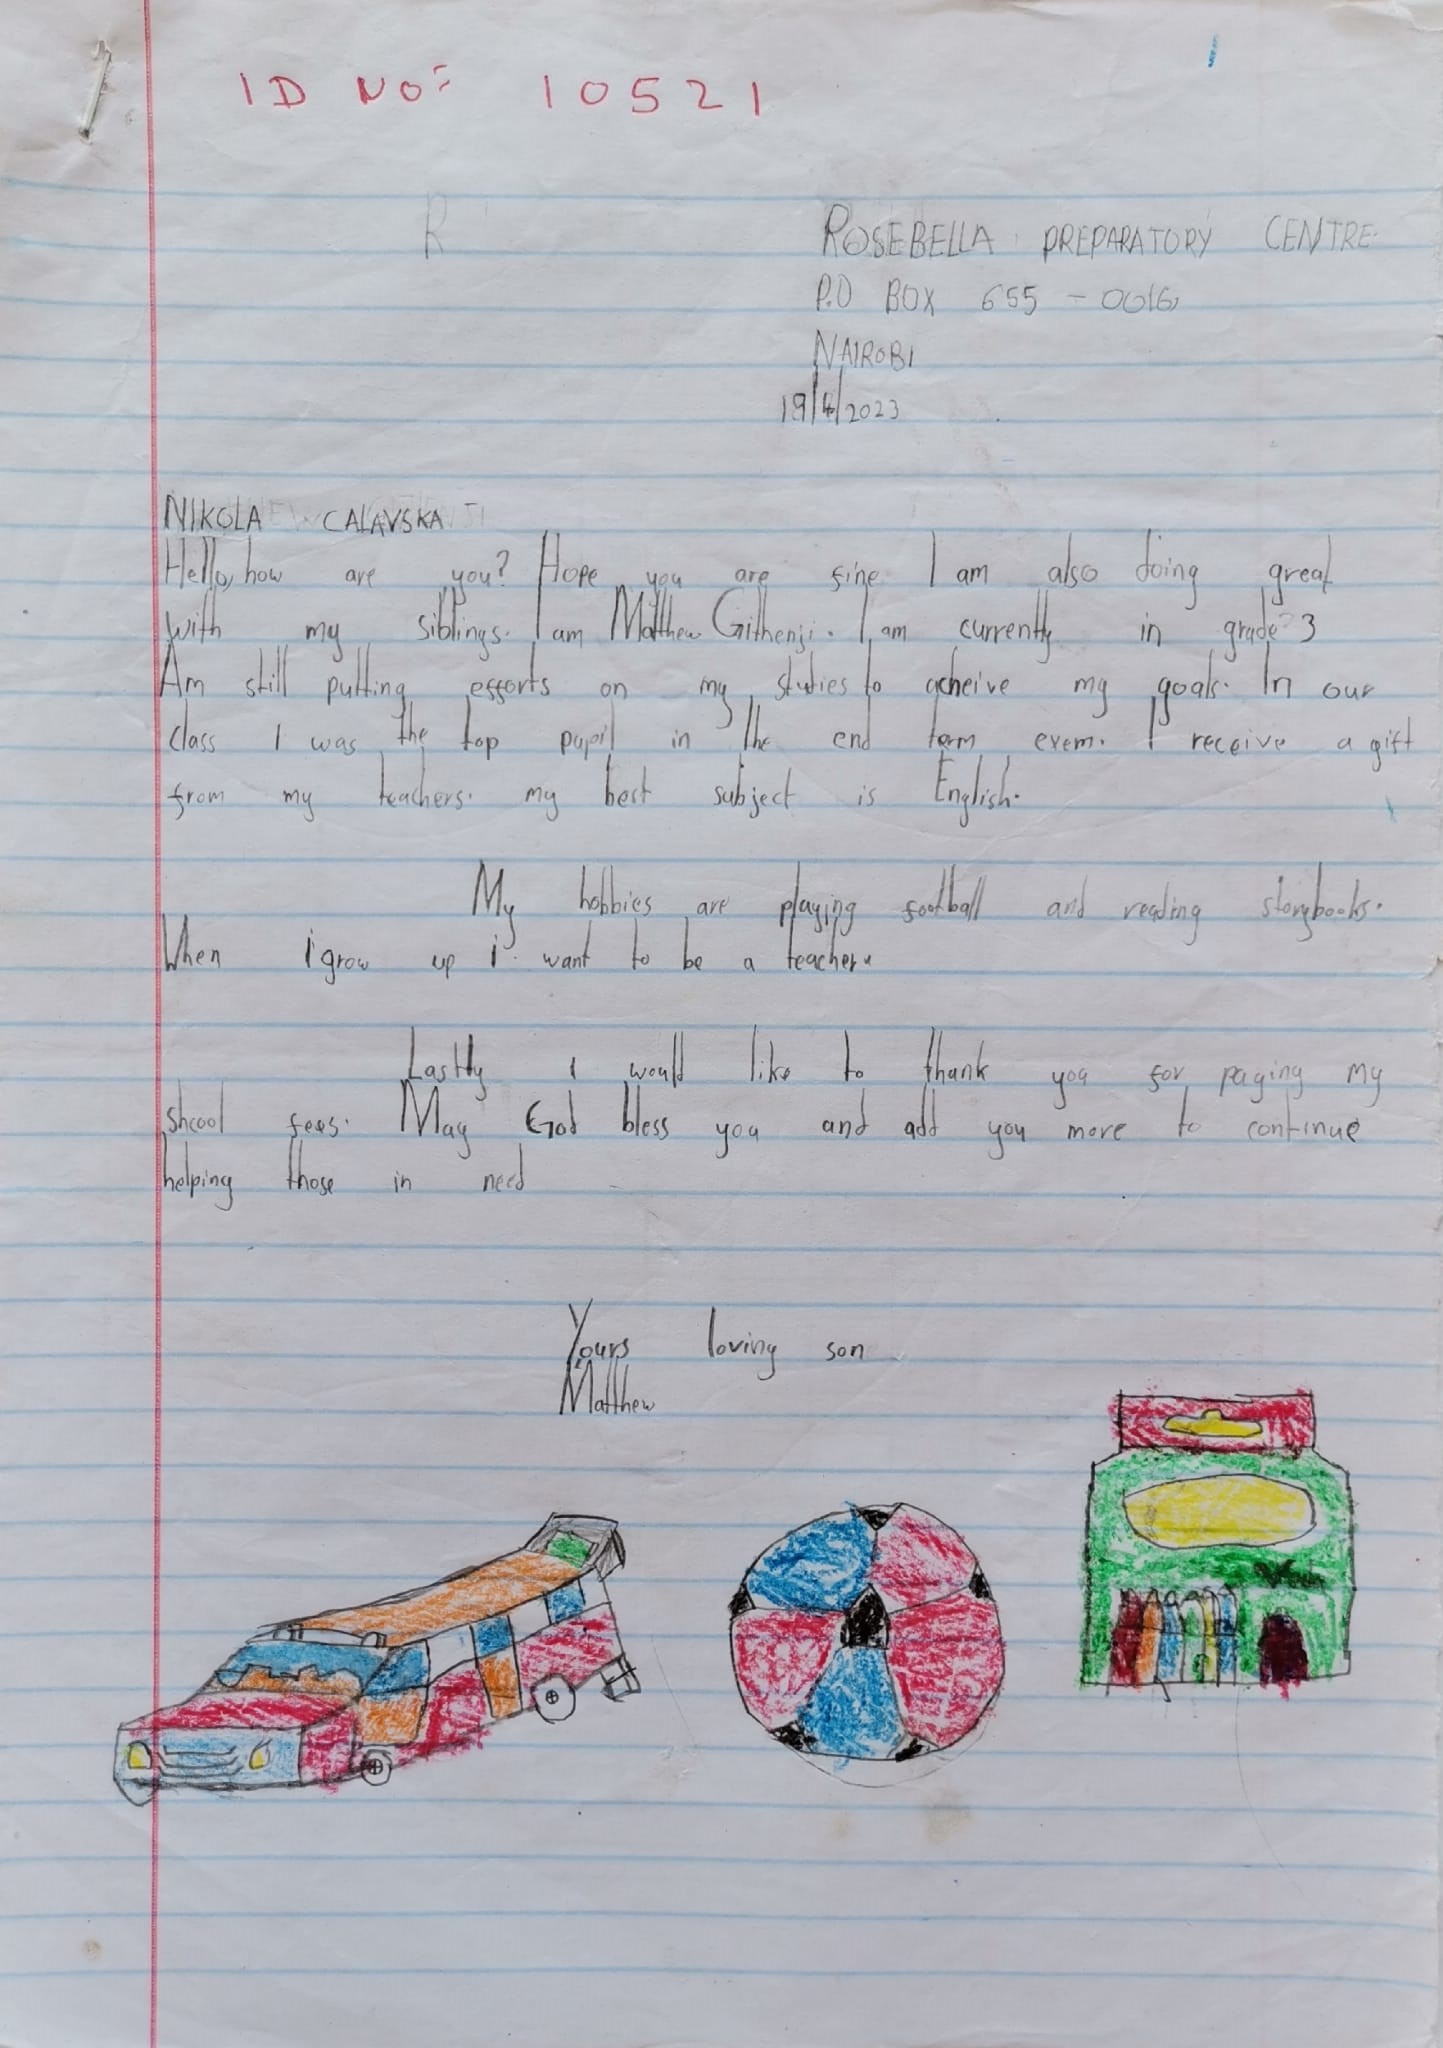 ID NO: 10521
R
ROSEBELLA PREPARATORY CENTRE.
P.O BOX 655 - 0016,
NAIROBI
19/4/2023
NIKOLA CALAVSKA
Hello, how are you? Hope you are fine I am also doing great
with my siblings. I am Matthew Githenji. I am currently in grade 3
Am still putting efforts on my studies to acheive my goals. In our
class I was the top pupil in the end term exem. I receive a gift
from my teachers. my best subject is English.
My hobbies are playing football and reading storybooks.
When i grow up i want to be a teacher.
Lastly I would like to thank you for paying my
shcool fees. May God bless you and add you more to continue
helping those in need
Yours loving son
Matthew